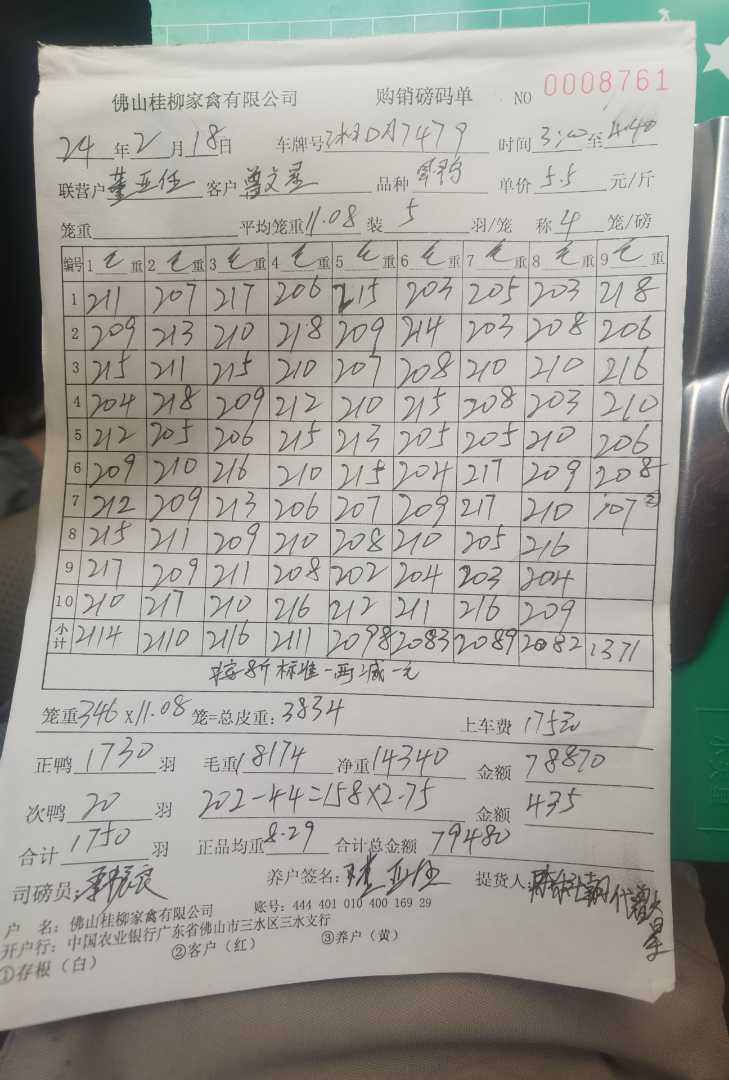 佛山桂柳家禽有限公司 购销磅码单 NO 0008761
24年2月18日 车牌号 DA7479 时间3:00至4.40
联营户董亚任 客户曾文星 品种 单价5.5元/斤
笼重 平均笼重11.08 装5羽/笼 称4笼/磅
编号 1毛重 2毛重 3毛重 4毛重 5毛重 6毛重 7毛重 8毛重 9毛重
1 211 207 217 206 215 203 205 203 218
2 209 213 210 218 209 214 203 208 206
3 215 211 215 210 207 208 210 210 216
4 204 218 209 212 210 215 208 203 210
5 212 205 206 215 213 205 205 210 206
6 209 210 216 210 215 204 217 209 208
7 212 209 213 206 207 209 217 210 107②
8 215 211 209 210 208 210 205 216
9 217 209 211 208 202 204 203 204
10 210 217 210 216 212 211 216 209
小计 2114 2110 2116 2111 2098 2083 2089 2082 1371
8斤标准一两减一元
笼重346×11.08笼=总皮重:3834 上车费175元
正鸭1730羽 毛重18174 净重14340 金额78870
次鸭20羽 202-44=158×2.75 金额435
合计1750羽 正品均重8.29 合计总金额79480
司磅员: 养户签名:董亚任 提货人: 代曾文星
户 名:佛山桂柳家禽有限公司 账号:444 401 010 400 169 29
开户行:中国农业银行广东省佛山市三水区三水支行
①存根(白) ②客户(红) ③养户(黄)